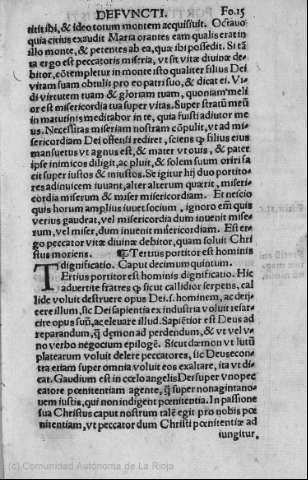 DEFVNCTI. Fo.15
titit ibi, & ideo totum montem acquisiuit. Octauo
quia citius exaudit Maria orantes eam qualis erat in
illo monte, & petentes ab ea, quæ ibi possedit. Si tā
ta ergo est peccatoris miseria, vt sit vitæ diuinæ de-
bitor, cōtempletur in monte isto qualiter filius Dei
vitam suam obtulit pro eo patri suo, & dicat ei. Vi-
di virtutem tuam & gloriam tuam, quoniam meli
or est misericordia tua super vitas. Super stratū meū
in matutinis meditabor in te, quia fuisti adiutor me
us. Necessitas miseriam nostram cōpulit, vt ad mi-
sericordiam Dei offensi rediret, sciens ꝙ filius eius
mansuetus vt agnus est, & mater vt ouis, & pater
ipse inimicos diligit, ac pluit, & solem suum oriri fa
cit super iustos & iniustos. Se igitur hij duo portito-
res adinuicem iuuant, alter alterum quærit, miseri-
cordia miserum & miser misericordiam. Et nescio
quis horum amplius iuuet socium, ignoro em̄ quis
verius gaudeat, vel misericordia dum inuenit mise-
rum, vel miser, dum inuenit misericordiam. Est er-
go peccator vitæ diuinæ debitor, quam soluit Chri
stus moriens. ¶ Tertius portitor est hominis
dignificatio. Caput decimum quintum.
Tertius portitor est hominis dignificatio. Hic
aduertite fratres ꝙ sicut callidior serpens, cal
lide voluit destruere opus Dei.s. hominem, ac deij-
cere illum, sic Dei sapientia ex industria voluit resar-
cire opus suū, ac eleuare illud. Sapiētior est Deus ad
reparandum, ꝗ̄ dęmon ad perdendum, & vt vel v-
no verbo negocium epilogē. Sicut dæmon vt lutū
platearum voluit delere peccatores, sic Deus econ-
tra etiam super omnia voluit eos exaltare, ita vt di-
cat. Gaudium est in cœlo angelis Dei super vno pec
catore pœnitentiam agente, ꝗ̄ super nonagintano-
uem iustis, qui non indigent pœnitentia. In passione
sua Christus caput nostrum talē egit pro nobis pœ
nitentiam, vt peccator dum Christi pœnitentiæ ad
iungitur,
(c) Comunidad Autónoma de La Rioja